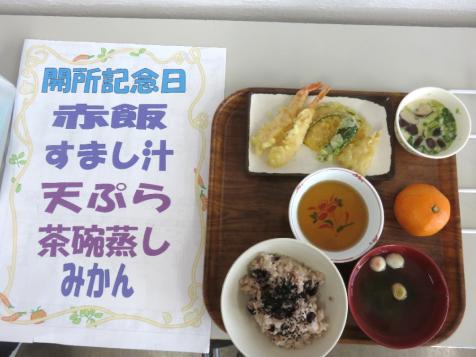 開所記念日
赤飯
すまし汁
天ぷら
茶碗蒸し
みかん